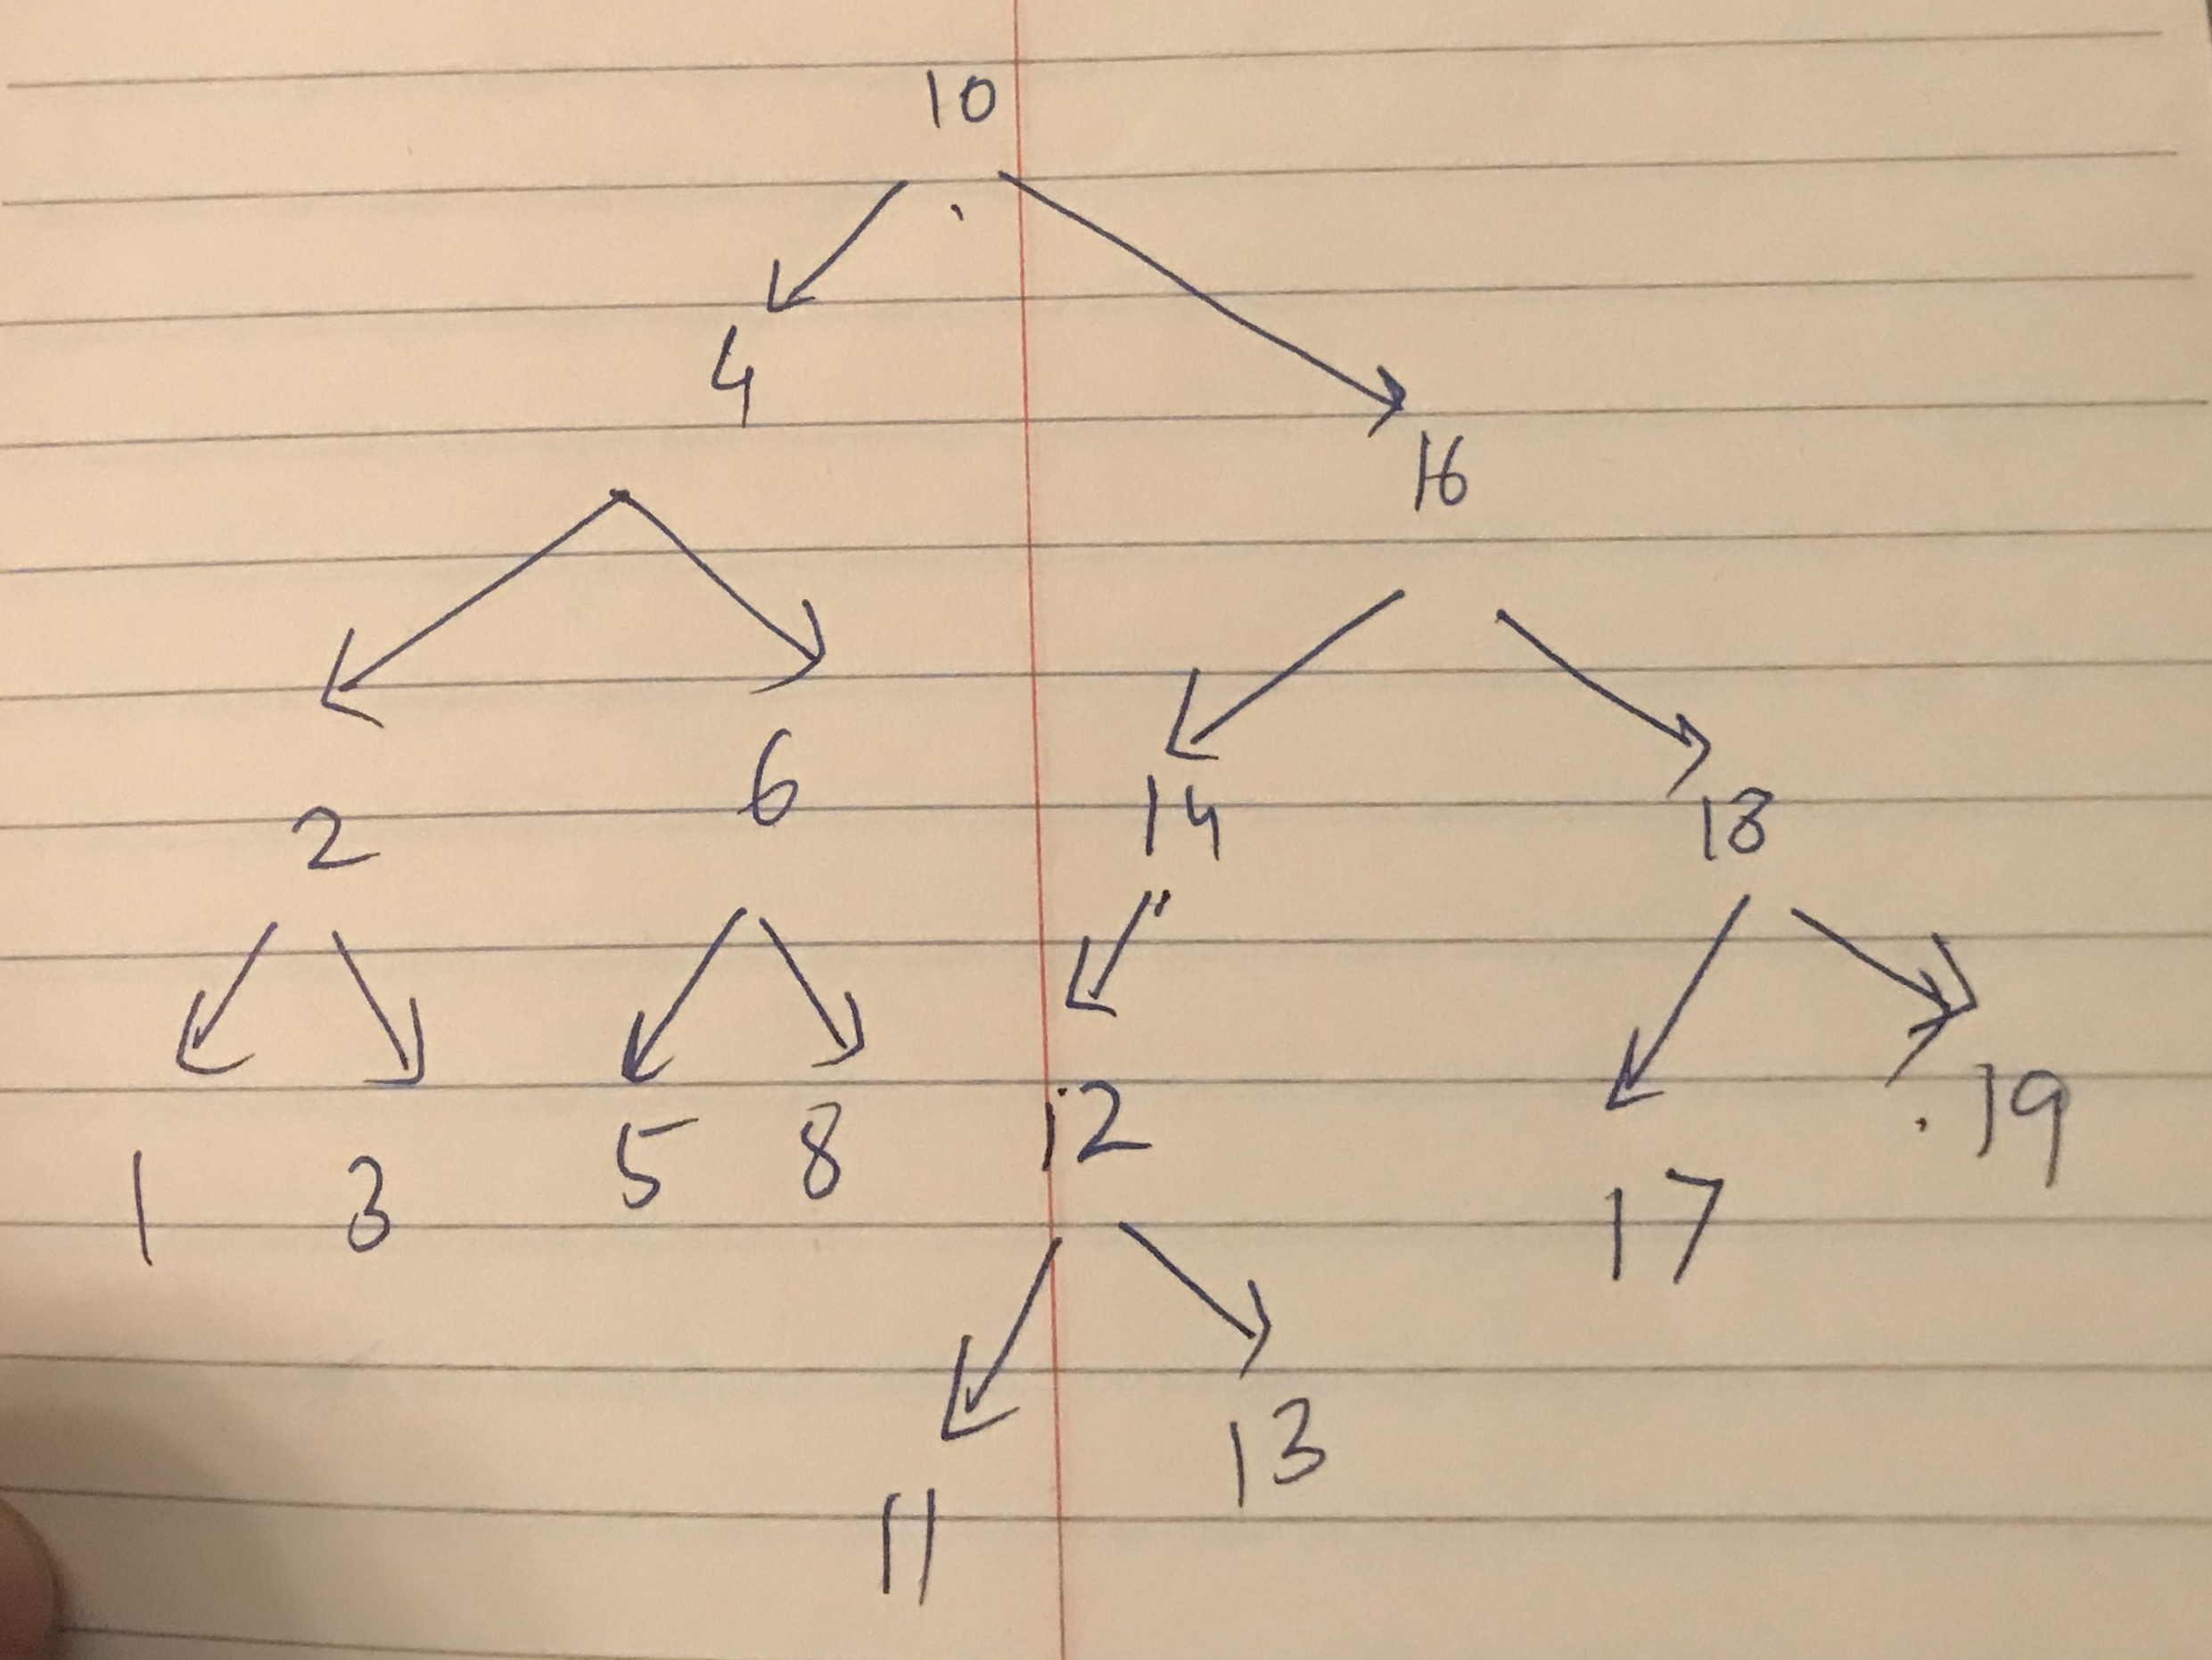 10
4
16
2 6 14 18
1 3 5 8 12 17 19
11 13